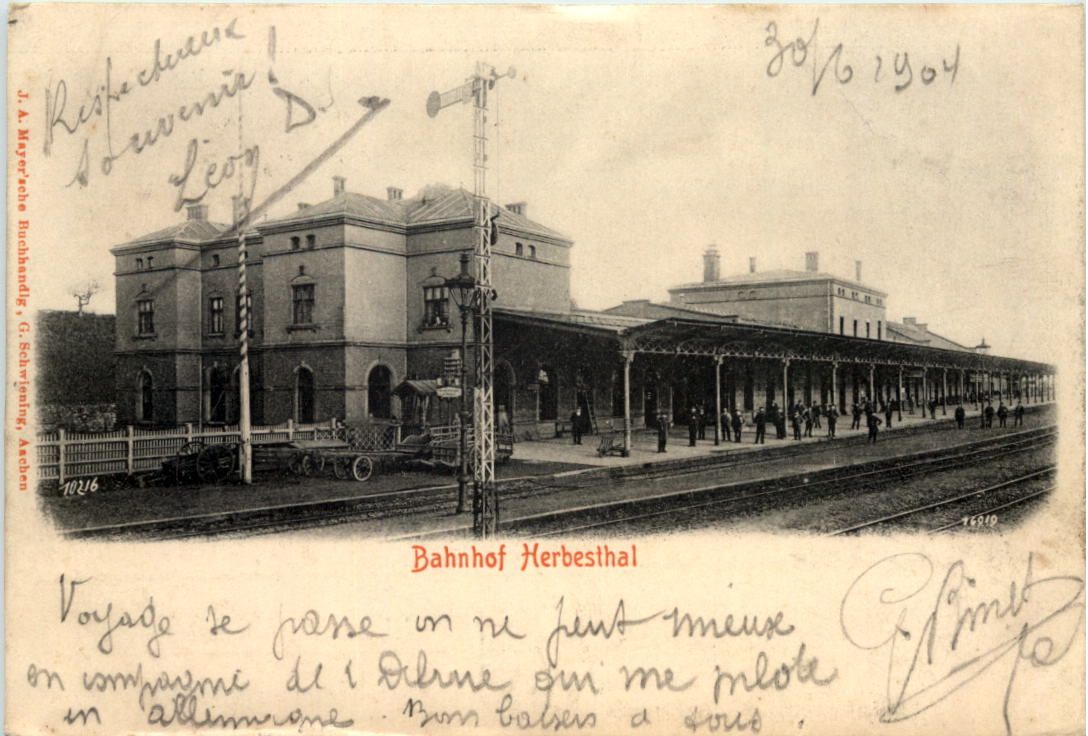 Respectueux
souvenir!
Léon D.
30/6 1904
J. A. Mayer'sche Buchhandlg, G. Schwiening, Aachen
10216
Bahnhof Herbesthal
Voyage se passe on ne peut mieux
en compagnie de qui me pilote
en allemagne. Bons baisers à tous.